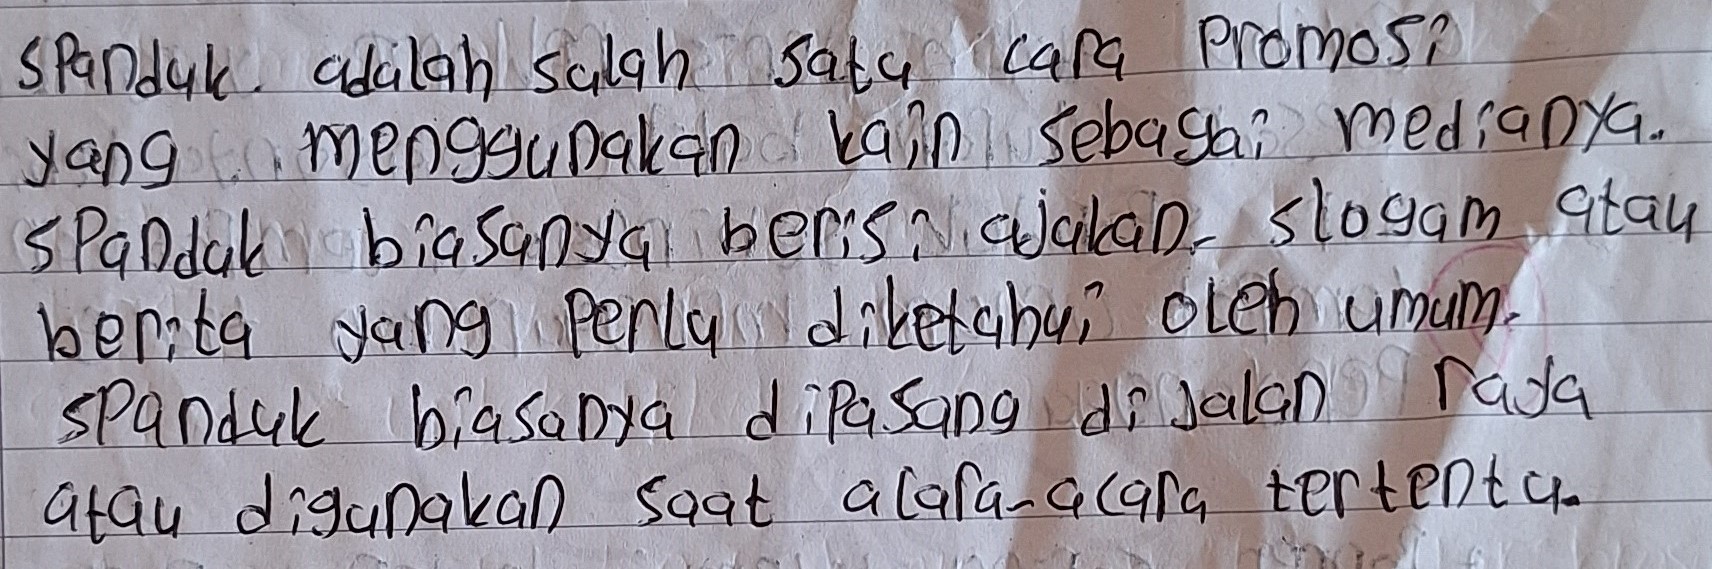 spanduk. adalah salah satu cara promosi
yang menggunakan kain sebagai medianya.
spanduk biasanya berisi ajakan, slogam atau
berita yang perlu diketahui oleh umum.
spanduk biasanya dipasang di jalan raya
atau digunakan saat acara-acara tertentu.